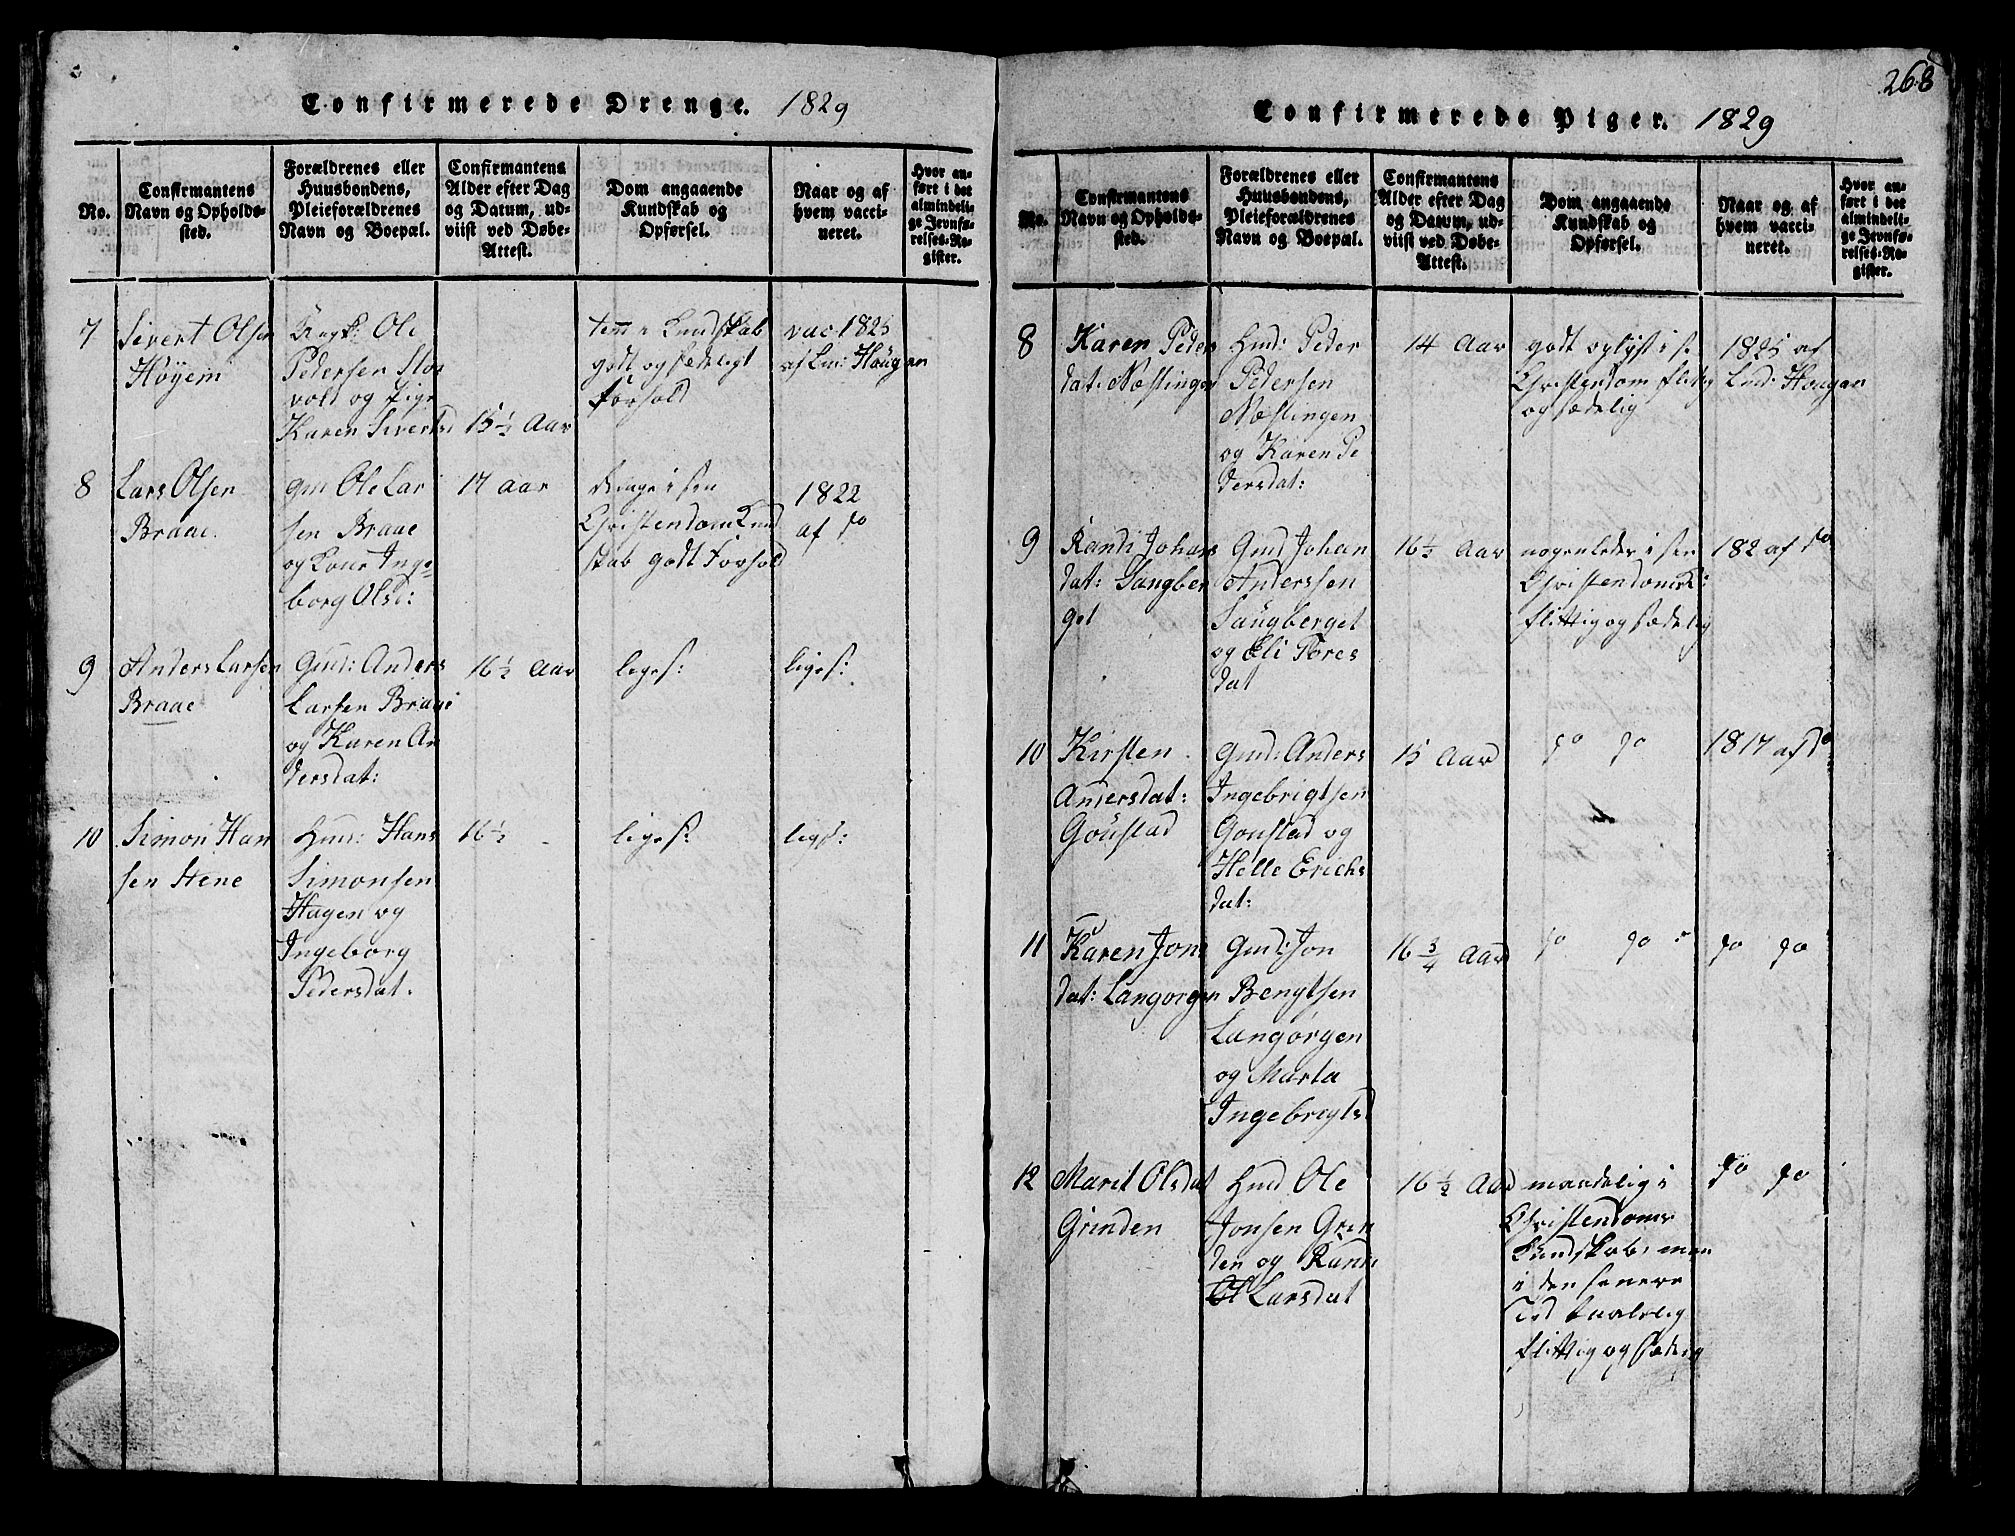 Confirmerede Drenge. 1829
No.
Confirmantens
Navn og Opholds-
sted.
Forældrenes eller
Huusbondens,
Pleieforældrenes
Navn og Boepæl.
Confirmantens
Alder efter Dag
og Datum, ud-
viist ved Døbe-
Attest.
Dom angaaende
Kundskab og
Opførsel.
Naar og af
hvem vacci-
neret.
Hvor an-
ført i det
almindeli-
ge Jevnfø-
relses-Re-
gister.
7
Sivert Olsen
Höyem
Ole
Pedersen Stor
vold og Pige
Karen Sivertsd
15 1/2 Aar
Kundskab
godt og sædeligt
Forhold
vac: 1825
af Haugan
8
Lars Olsen
Braae.
Gm Ole Lar
sen Braae
og Kone Inge
borg Olsd:
17 aar
ringe i sin
Christendom Kund
skab godt Forhold
1822
af do
9
Anders Larsen
Braae
Gmd: Anders
Larsen Braae
og Karen An
dersdat:
16 1/2 Aar
liges:
liges:
10
Simon Han
sen Stene
Huusmd: Hans
Simonsen
Hagen og
Ingeborg
Pedersdat.
16 1/2
liges:
liges:
268
Confirmerede Piger. 1829
No.
Confirmantens
Navn og Opholds-
sted.
Forældrenes eller
Huusbondens,
Pleieforældrenes
Navn og Boepæl.
Confirmantens
Alder efter Dag
og Datum, ud-
viist ved Døbe-
Attest.
Dom angaaende
Kundskab og
Opførsel.
Naar og af
hvem vacci-
neret.
Hvor an-
ført i det
almindeli-
ge Jevnfø-
relses-Re-
gister.
8
Karen Peders
dat: Næstingen
Hmd: Peder
Pedersen
Næstingen
og Karen Pe
dersdat:
14 Aar
godt oplyst i s.
Christendom flitig
og sædelig
1825 af
Haugan
9
Randi Johans
dat: Saugber
get
Gmd Johan
Anderssen
Saugberget
og Eli Tores
dat
16 1/2 Aar
nogenledes i sin
Christendomsk:
flittig og sædelig
182 af do
10
Kirsten
Andersdat:
Goustad
Gmd: Anders
Ingebrigtsen
Goustad og
Helle Erichs
dat:
15 Aar
do do
1817 af do
11
Karen Jons
dat: Langörgen
Gmd: Jon
Bengtsen
Langörgen
og Marta
Ingebrigtsd
16 3/4 Aar
do do
do do
12
Marit Olsdat
Grinden
Hmd Ole
Jonsen Grin
den og Randi
Larsdat
16 1/2 Aar
maadelig i
Christendoms
Kundskab, men
i den senere
Tid
flittig og sædelig
do do